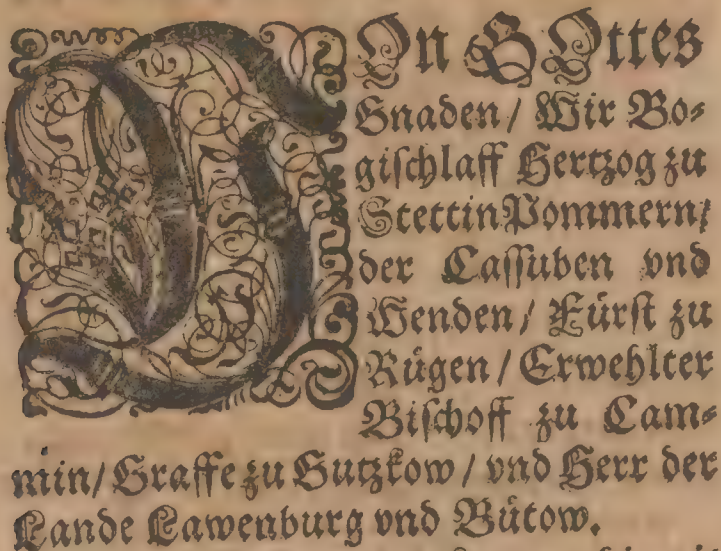 VOn GOttes
Gnaden / Wir Bo⸗
giſchlaff Hertzog zu
Stettin Pommern /
der Caſſuben vnd
Wenden / Fürſt zu
Rügen / Erwehlter
Biſchoff zu Cam⸗
min / Graffe zu Gutzkow / vnd Herr der
Lande Lawenburg vnd Bütow.